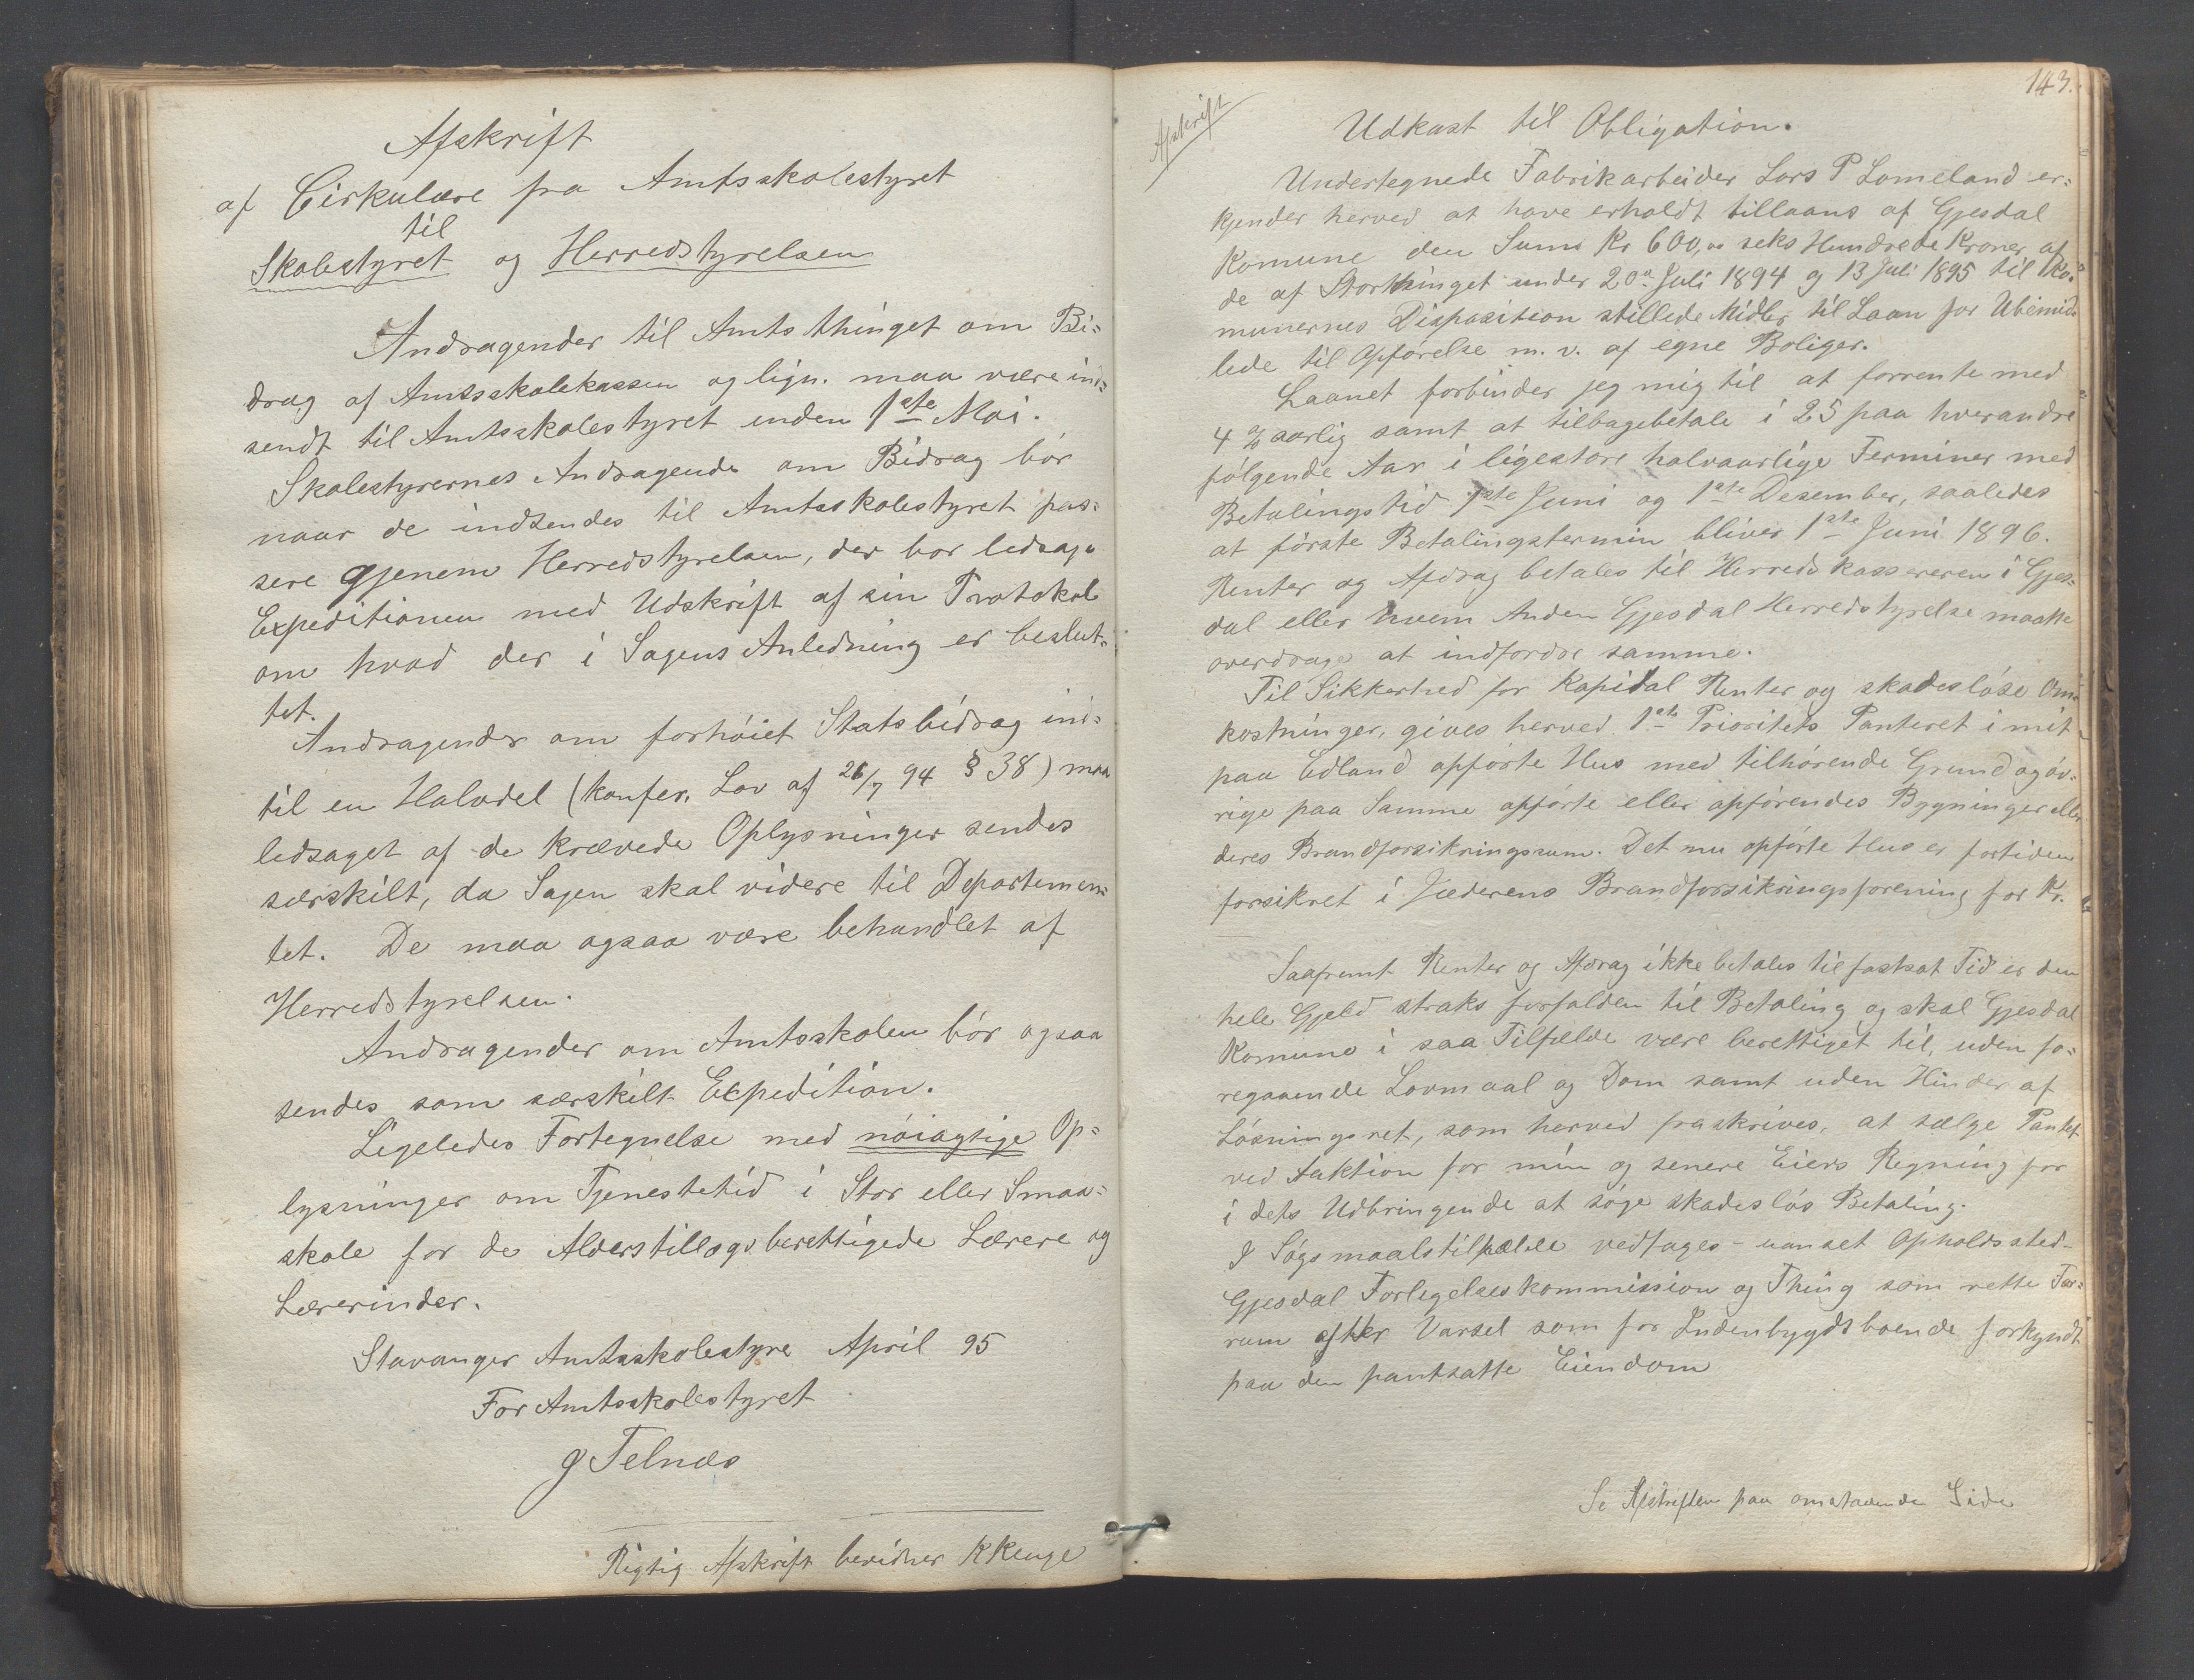 Afskrift
af Cirkulære fra Amtsskolestyret
til
Skolestyret og Herredstyrelsen
Andragender til Amtsthinget om Bi=
drag af Amtsskolekassen og lign. maa være ind=
sendt til Amtsskolestyret inden 1ste Mai.
Skolestyrernes Andragende om Bidrag bör
naar de indsendes til Amtsskolestyret pas=
sere gjenem Herredstyrelsen, der bör ledsage
Expeditionen med Udskrift af sin Protokol
om hvad der i Sagens Anledning er beslut=
tet.
Andragender om forhöiet Statsbidrag ind=
til en Halvdel (konfer. Lov af 26/7 94 § 38) maa
ledsaget af de krævede Oplysninger sendes
særskilt, da Sagen skal videre til Departemen=
tet. De maa ogsaa være behandlet af
Herredstyrelsen.
Andragender om Amtsskolen bör ogsaa
sendes som særskilt Expedition.
Ligeledes Fortegnelse med nöiagtige Op=
lysninger om Tjenestetid i Stor eller Smaa=
skole for de Alderstillægsberettigede Lærere og
Lærerinder.
Stavanger Amtsskolestyre April 95
For Amtsskolestyret
G Telnæs
Rigtig Afskrift bevidner K Kenge
143.
Afskrift
Udkast til Obligation.
Undertegnede Fabrikarbeider Lars P Lomeland er=
kjender herved at have erholdt tillaans af Gjesdal
Komune den Sum Kr 600,00 seks Hundrede Kroner af
de af Storthinget under 20de Juli 1894 og 13 Juli 1895 til Ko=
munernes Disposition stillede Midler til Laan for Ubemid=
lede til Opförelse m. v. af egne Boliger.
Laanet forbinder jeg mig til at forrente med
4 % aarlig samt at tilbagebetale i 25 paa hverandre
fölgende Aar i ligestore halvaarlige Terminer med
Betalingstid 1ste Juni og 1ste Desember, saaledes
at förste Betalingstermin bliver 1ste Juni 1896.
Renter og Afdrag betales til Herredskassereren i Gjes=
dal eller hvem Anden Gjesdal Herredstyrelse maatte
overdrage at indfordre samme.
Til Sikkerhed for Kapital Renter og skadeslöse Om=
kostninger, gives herved 1ste Prioritets Panteret i mit
paa Edland opförte Hus med tilhörende Grund og öv=
rige paa Samme opförte eller opförendes Bygninger eller
deres Brandforsikringssum. Det nu opförte Hus er fortiden
forsikret i Jæderens Brandforsikringsforening for Kr.
Saafremt Renter og Afdrag ikke betales til fastsat Tid er den
hele Gjeld straks forfalden til Betaling og skal Gjesdal
Komune i saa Tilfælde være berettiget til, uden fo=
regaaende Lovmaal og Dom samt uden Hinder af
Lösningsret, som herved fraskrives, at sælge Pantet
ved Auktion for min og senere Eiers Regning for
i dets Udbringende at söge skadeslös Betaling.
I Sögsmaalstilfælde vedtages - uanset Opholdssted -
Gjesdal Forligelseskommission og Thing som rette Fo=
rum efter Varsel som for Indenbygdsboende forkyndt
paa den pantsatte Eiendom
Se Afskriften paa omstaaende Side